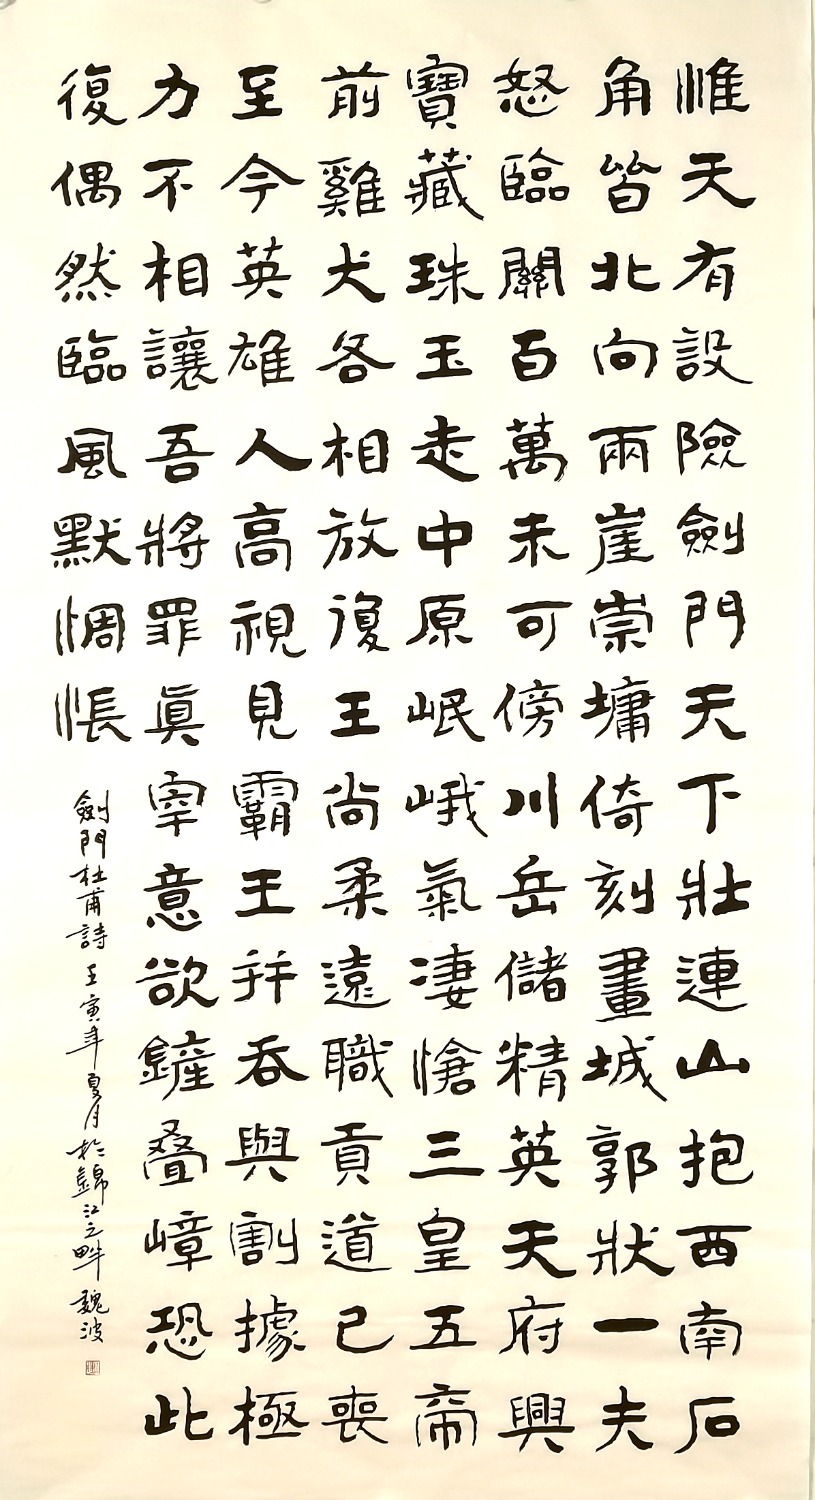 惟天有設險劍門天下壯連山抱西南石
角皆北向兩崖崇墉倚刻畫城郭狀一夫
怒臨關百萬未可傍川岳儲精英天府興
寶藏珠玉走中原岷峨氣凄愴三皇五帝
前雞犬各相放後王尚柔遠職貢道已喪
至今英雄人高視見霸王并吞與割據極
力不相讓吾將罪真宰意欲鏟叠嶂恐此
復偶然臨風默惆悵
劍門杜甫詩 壬寅年夏月於錦江之畔 魏波